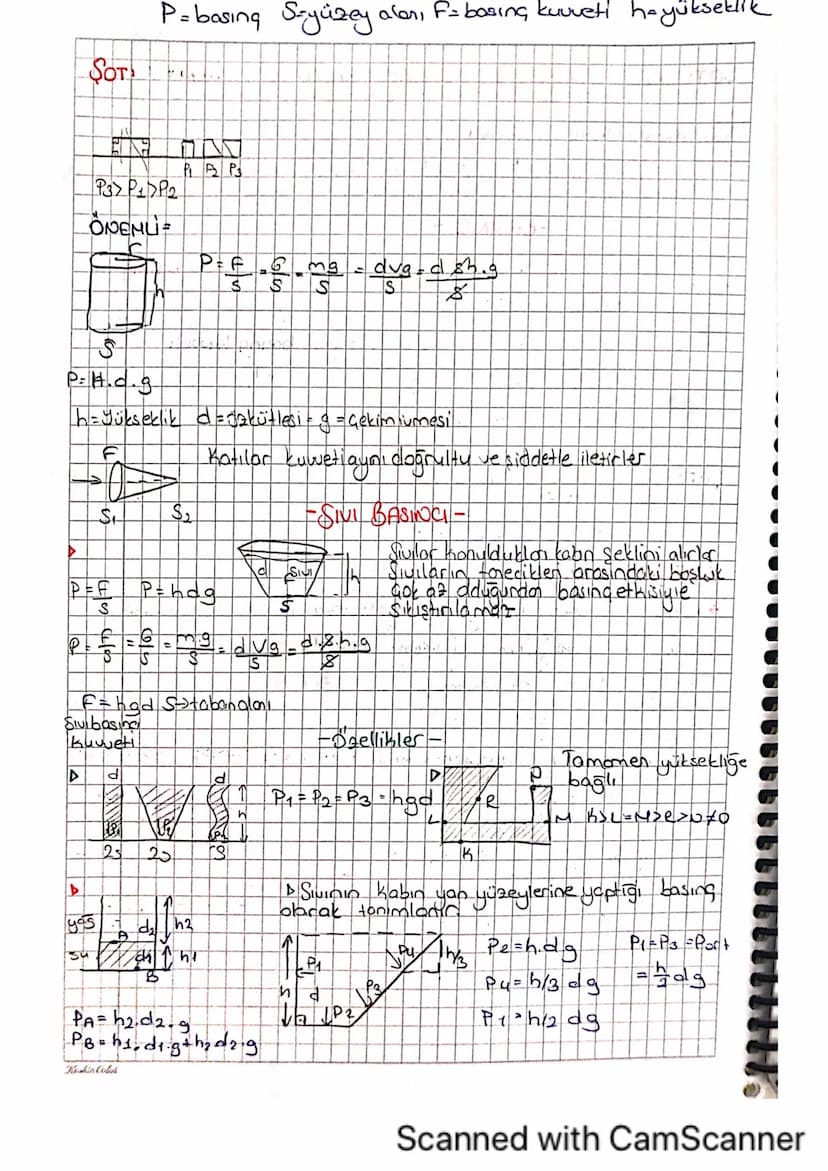 P=basınç S=yüzey alanı, F=basınç kuvveti h=yükseklik
ŞOT:
P1 P2 P3
P3>P1>P2
ÖNEMLİ=
P=F/S=G/S=mg/S=dvg/S=d.S.h.g/S
h
S
P=H.d.g
h=Yükseklik d=özkütlesi= g=Çekim ivmesi
F Katılar kuvveti aynı doğrultu ve şiddetle iletirler
S1 S2
-SIVI BASINCI-
Sıvılar konuldukları kabın şeklini alırlar
Sıvıların tanecikleri arasındaki boşluk
çok az olduğundan basınç etkisiyle
sıkıştırılamaz
d Sıvı F h
S
P=F/S P=hdg
P=F/S=G/S=m.g/S=dVg/S=d.S.h.g/S
F=hgd S→taban alanı
Sıvı basınç
kuvveti
-Özellikler-
d d
P1=P2=P3=hgd
h
2S S
Tamamen yüksekliğe
bağlı
P R L M K
K>L=M>R>P≠0
Sıvının kabın yan yüzeylerine yaptığı basınç
olarak tanımlanır
yağ A d2 h2
su d1 h1
B
PA=h2.d2.g
PB=h1.d1.g+h2.d2.g
h P1 d P2 P3 P4 h/3
P2=h.d.g
P4=h/3 dg
P1=h/2 dg
P1=P3=Port
=h/2 dg
Scanned with CamScanner